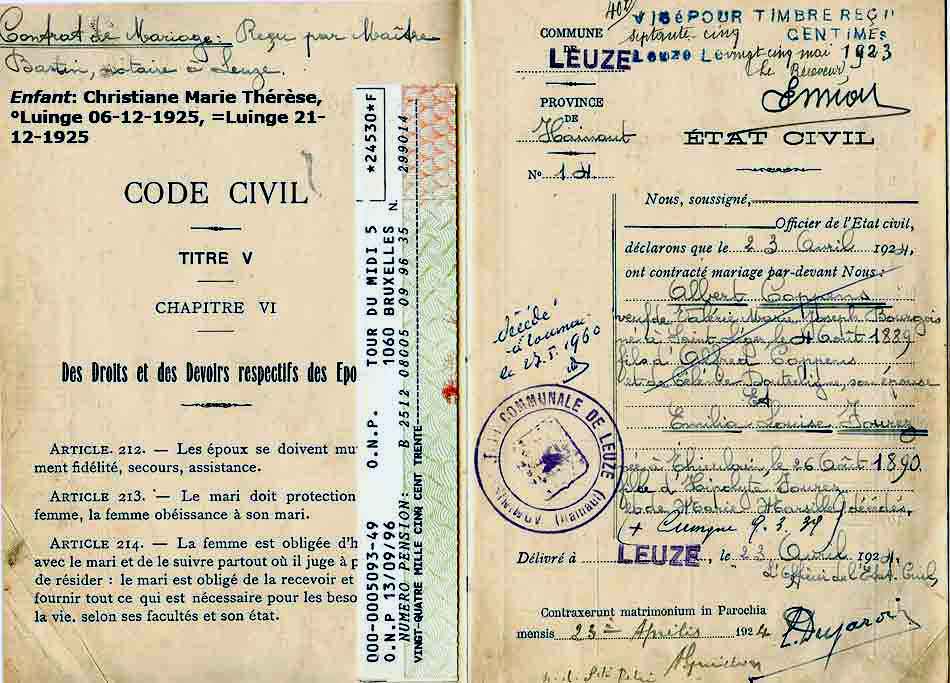 Contrat de Mariage: Reçu par Maître
Bastin, notaire à Leuze.
Enfant: Christiane Marie Thérèse,
°Luinge 06-12-1925, =Luinge 21-
12-1925
CODE CIVIL
TITRE V
CHAPITRE VI
Des Droits et des Devoirs respectifs des Epo
ARTICLE. 212. — Les époux se doivent mu
ment fidélité, secours, assistance.
ARTICLE 213. — Le mari doit protection
femme, la femme obéissance à son mari.
ARTICLE 214. — La femme est obligée d'h
avec le mari et de le suivre partout où il juge à p
de résider : le mari est obligé de la recevoir et
fournir tout ce qui est nécessaire pour les beso
la vie. selon ses facultés et son état.
*24530*F
299014
N.
TOUR DU MIDI 5
1060 BRUXELLES
O.N.P.
000-0005093-49
O.N.P 13/09/96
NUMERO PENSION: B 2512 08005 09 96 35
VINGT-QUATRE MILLE CINQ CENT TRENTE
VISÉ POUR TIMBRE REÇU
septante cinq CENTIMES
Leuze Le vingt cinq mai 1923
Le Receveur
COMMUNE
DE
LEUZE
PROVINCE
DE
Hainaut
N° 14
ÉTAT CIVIL
Nous, soussigné,
Officier de l'Etat civil,
déclarons que le 23 Avril 1924
ont contracté mariage par-devant Nous:
Albert Coppens
veuf de Valérie Marie Joseph Bourgois
né à Saint Léger le 4 Août 1889
fils d'Alfred Coppens
et de Célénie son épouse
Et
Emilia Louise Fourez
née à Thieulain le 26 Août 1890
fille d'Hipolyte Fourez
et de Marie décédés,
+ Luingne 9.3.39
décédé
à Tournai
le 27.5.1960
COMMUNALE DE LEUZE
(Hainaut)
Délivré à LEUZE, le 23 Avril 1924,
L'Officier de l'Etat Civil,
Contraxerunt matrimonium in Parochia
mensis 23 Aprilis 1924
E. Dujardin